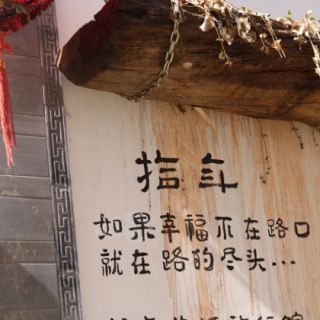 拾年
如果幸福不在路口
就在路的尽头...